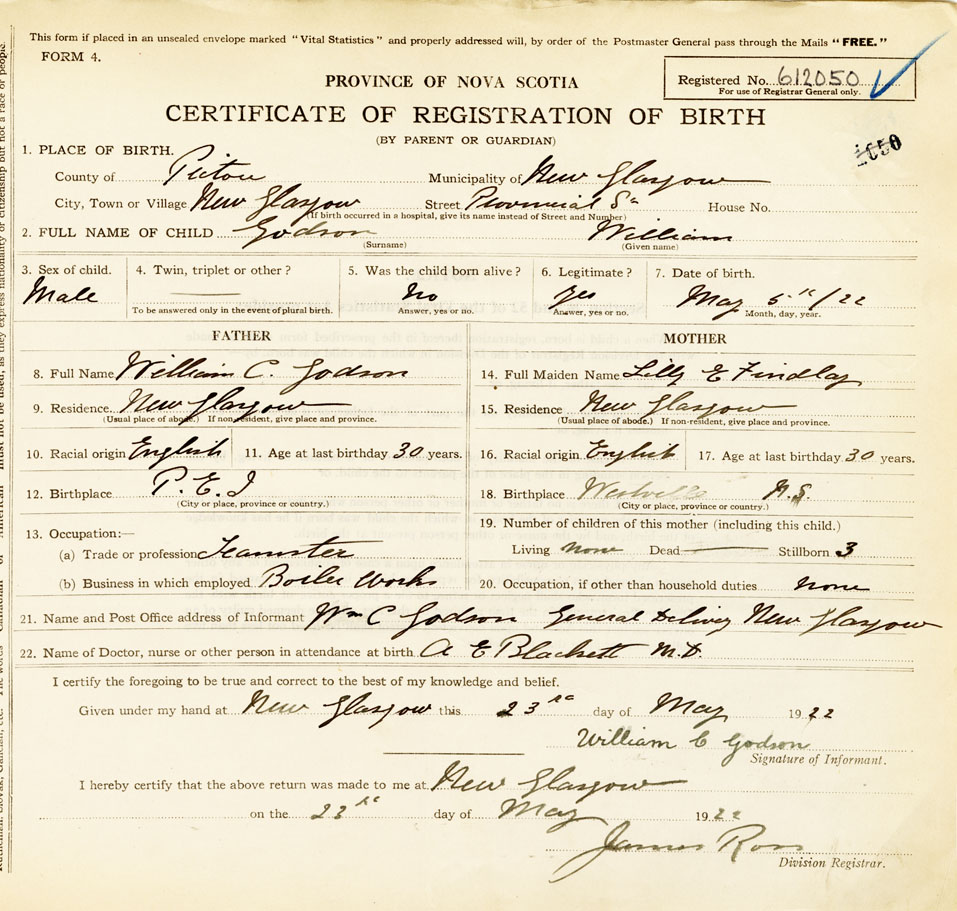 This form if placed in an unsealed envelope marked "Vital Statistics" and properly addressed will, by order of the Postmaster General pass through the Mails "FREE."
FORM 4.
Registered No. 612050
For use of Registrar General only.
PROVINCE OF NOVA SCOTIA
CERTIFICATE OF REGISTRATION OF BIRTH
(BY PARENT OR GUARDIAN)
1. PLACE OF BIRTH.
County of Pictou Municipality of New Glasgow
City, Town or Village New Glasgow Street Provincial St House No.
(If birth occurred in a hospital, give its name instead of Street and Number)
2. FULL NAME OF CHILD Godson William
(Surname) (Given name)
3. Sex of child. 4. Twin, triplet or other? 5. Was the child born alive? 6. Legitimate? 7. Date of birth.
Male No Yes May 5th/22
To be answered only in the event of plural birth. Answer, yes or no. Answer, yes or no. Month, day, year.
FATHER MOTHER
8. Full Name William C. Godson 14. Full Maiden Name Lilly E Findlay
9. Residence. New Glasgow 15. Residence New Glasgow
(Usual place of abode.) If non-resident, give place and province. (Usual place of abode.) If non-resident, give place and province.
10. Racial origin English 11. Age at last birthday 30 years. 16. Racial origin English 17. Age at last birthday 30 years.
12. Birthplace P.E.I 18. Birthplace Westville N.S.
(City or place, province or country.) (City or place, province or country.)
13. Occupation:— 19. Number of children of this mother (including this child.)
(a) Trade or profession Teamster Living none Dead Stillborn 3
(b) Business in which employed Boiler Works 20. Occupation, if other than household duties none
21. Name and Post Office address of Informant Wm C Godson General Delivery New Glasgow
22. Name of Doctor, nurse or other person in attendance at birth A E Blackett M.D.
I certify the foregoing to be true and correct to the best of my knowledge and belief.
Given under my hand at New Glasgow this 23rd day of May 1922
William C Godson
Signature of Informant.
I hereby certify that the above return was made to me at New Glasgow
on the 23rd day of May 1922
James Ross
Division Registrar.